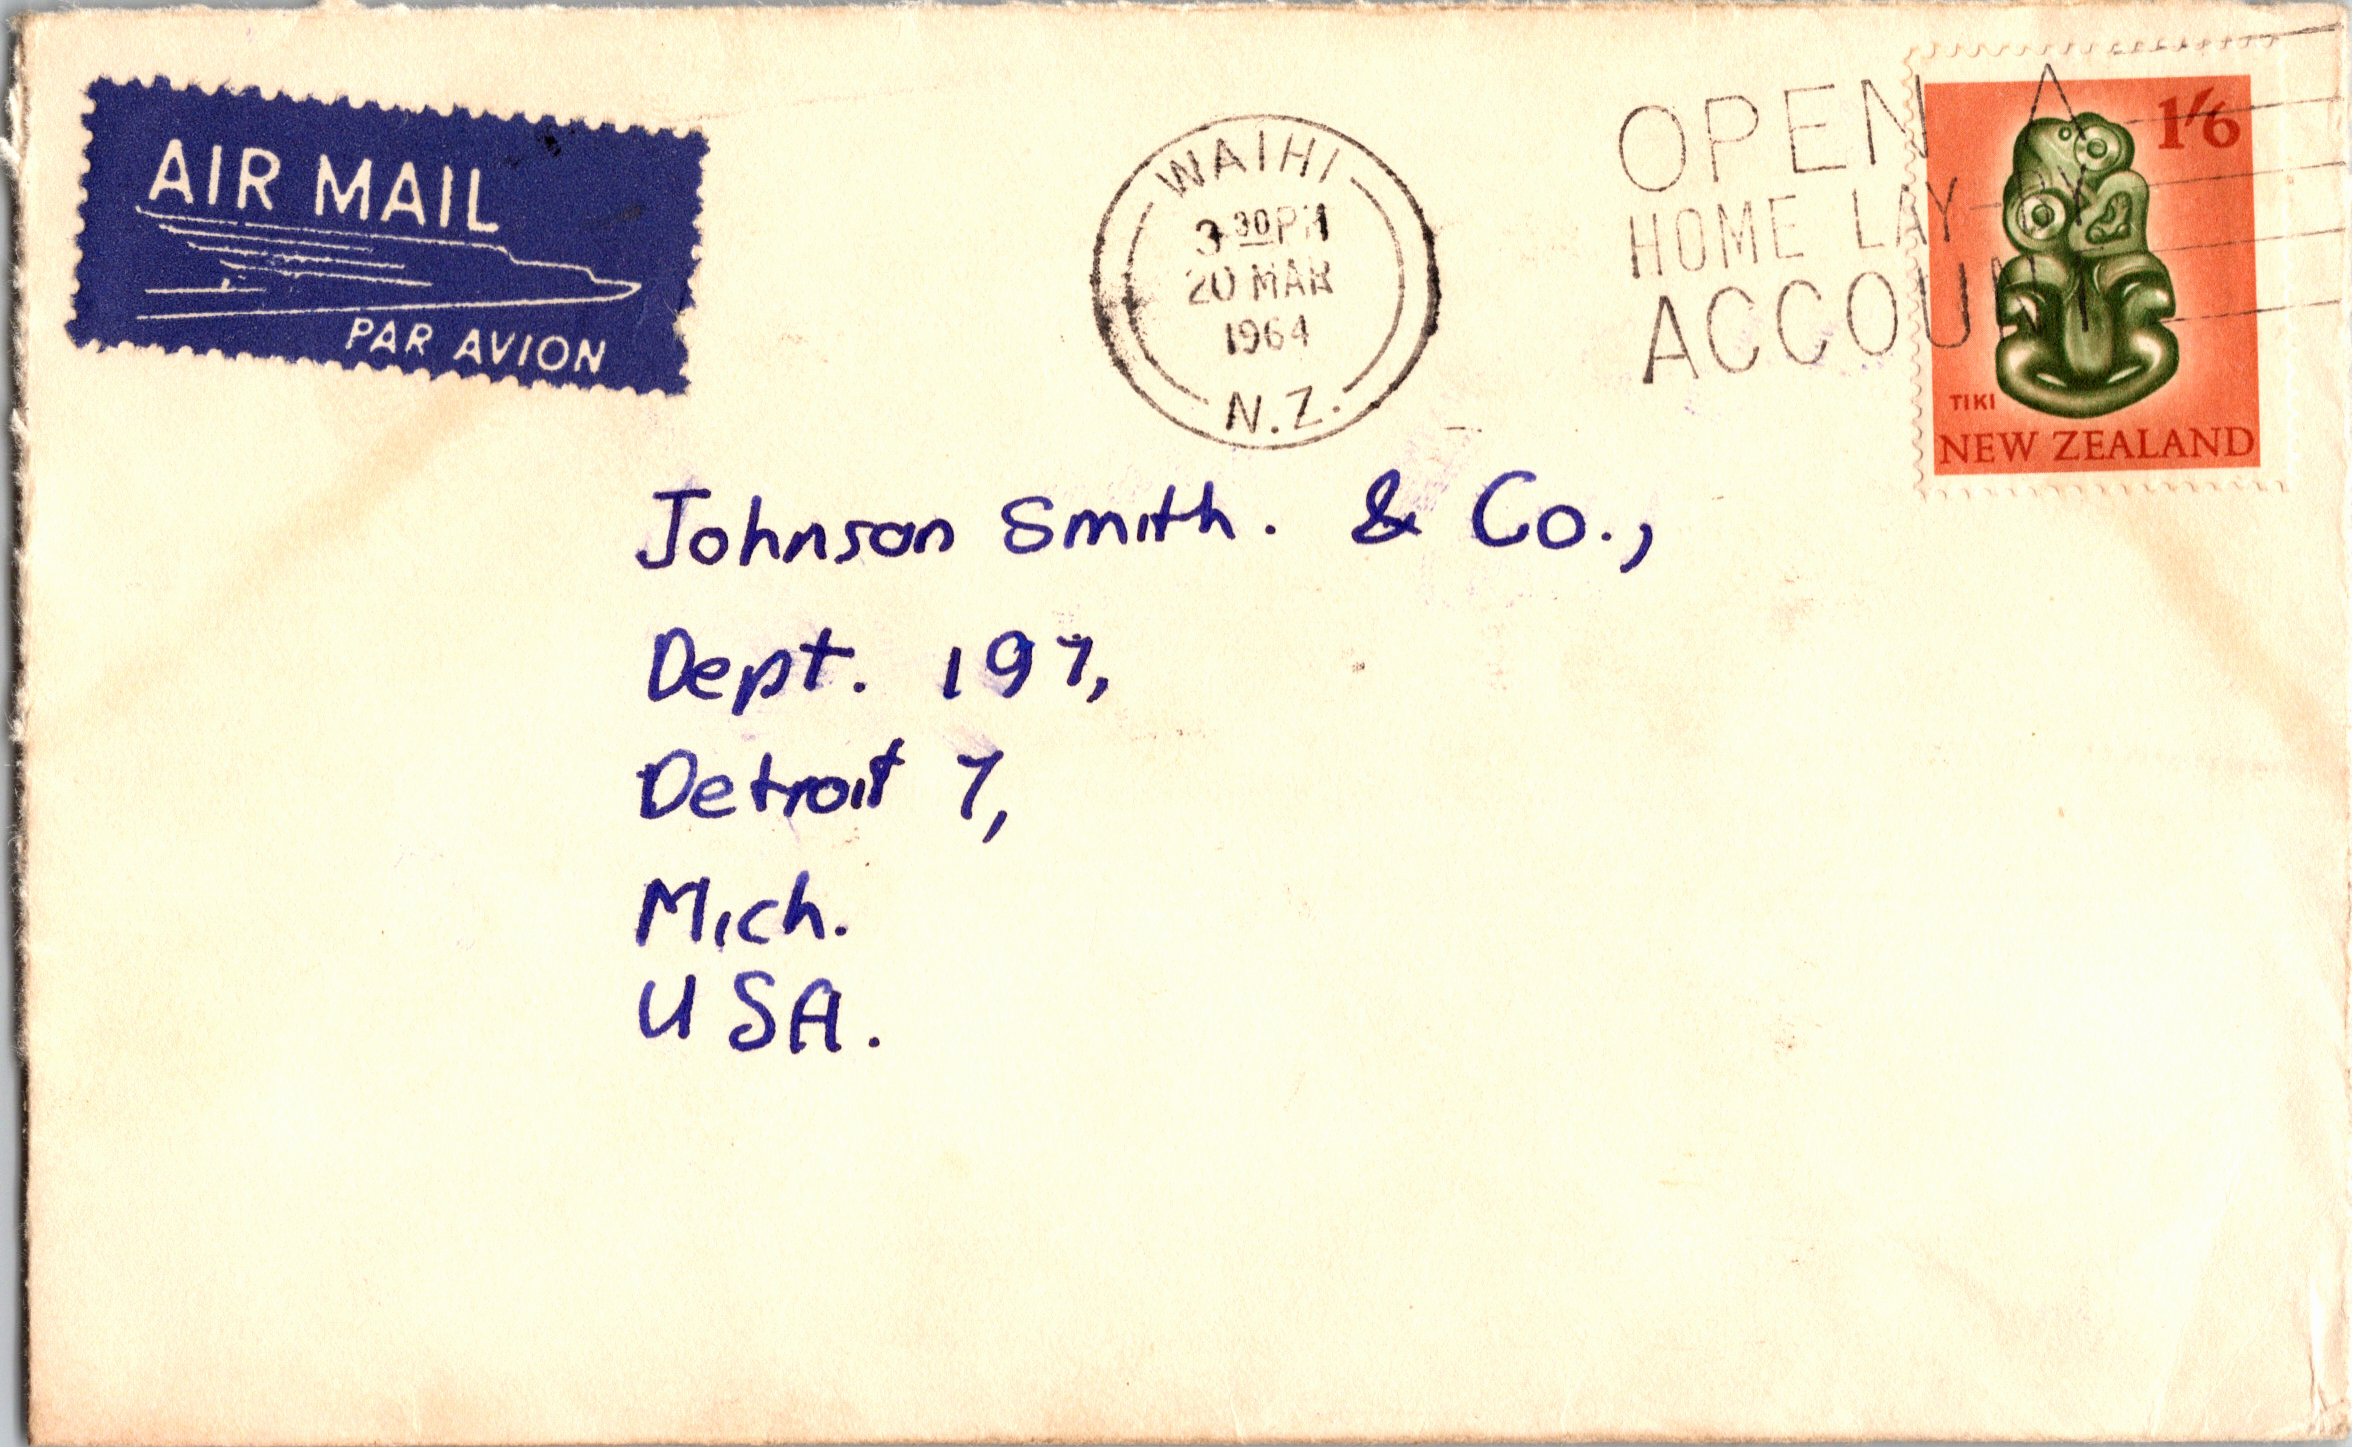 AIR MAIL
PAR AVION
WAIHI
3 30 PM
20 MAR
1964
N.Z.
OPEN A
HOME LAY-BY
ACCOUNT
1/6
TIKI
NEW ZEALAND
Johnson Smith. & Co.,
Dept. 197,
Detroit 7,
Mich.
USA.